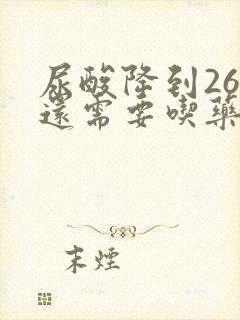 尿酸降到26
還需要喫藥
末煙